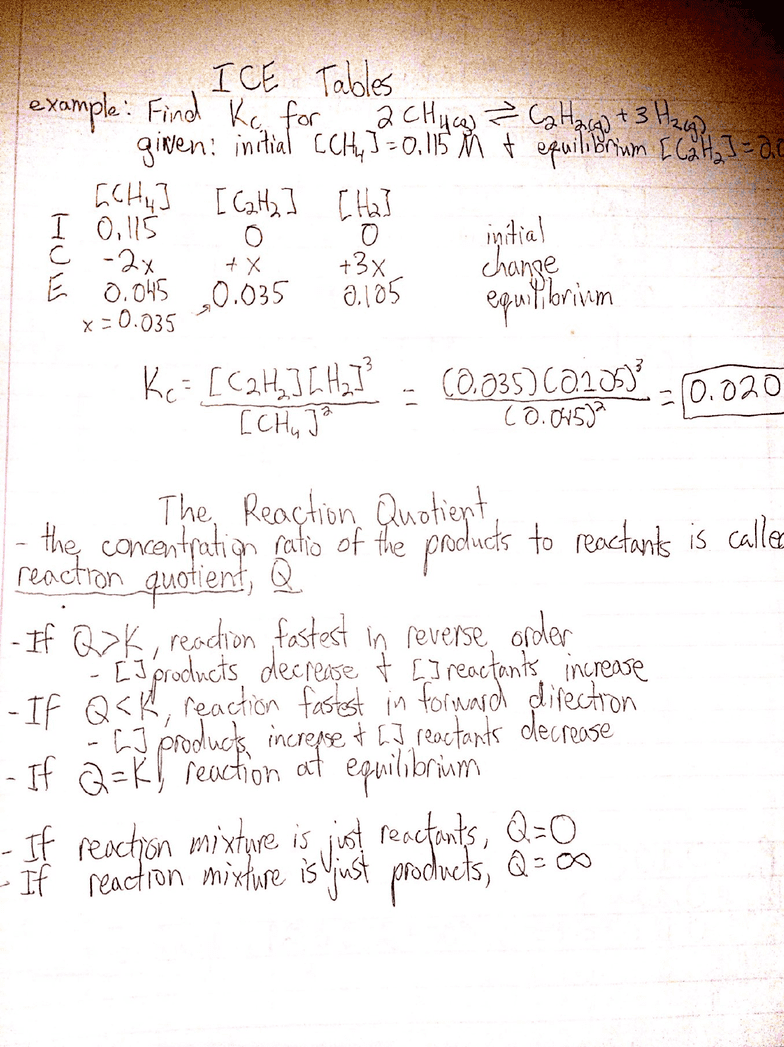 ICE Tables
example: Find Kc for 2CH₄(g) ⇌ C₂H₂(g) + 3H₂(g)
given: initial [CH₄] = 0.115 M + equilibrium [C₂H₂] = 0.0
[CH₄] [C₂H₂] [H₂]
I 0.115 0 0 initial
C -2x +x +3x change
E 0.045 0.035 0.105 equilibrium
x = 0.035
Kc = [C₂H₂][H₂]³ / [CH₄]² = (0.035)(0.105)³ / (0.045)² = 0.020
The Reaction Quotient
- the concentration ratio of the products to reactants is called
reaction quotient, Q
- If Q>K, reaction fastest in reverse order
- [ ] products decrease + [ ] reactants increase
- If Q<K, reaction fastest in forward direction
- [ ] products increase + [ ] reactants decrease
- If Q=K, reaction at equilibrium
- If reaction mixture is just reactants, Q=0
- If reaction mixture is just products, Q=∞